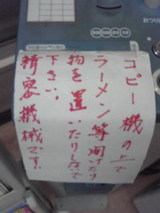 コピー機の上で
ラーメン等開けたり
物を置いたりしないで
下さい。
精密機械です。